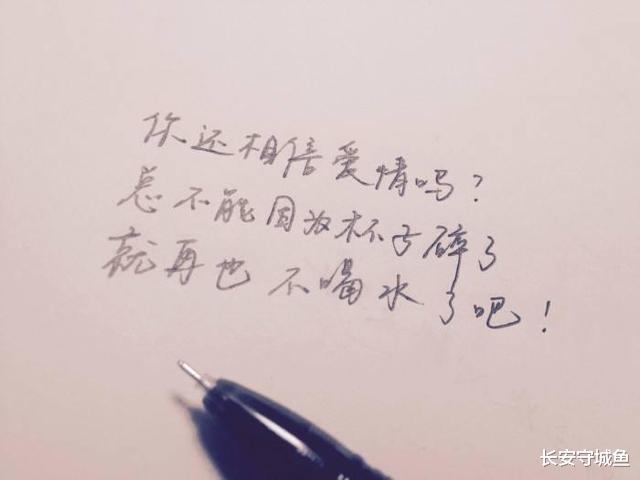 你还相信爱情吗？
总不能因为杯子碎了
就再也不喝水了吧！
长安守城鱼